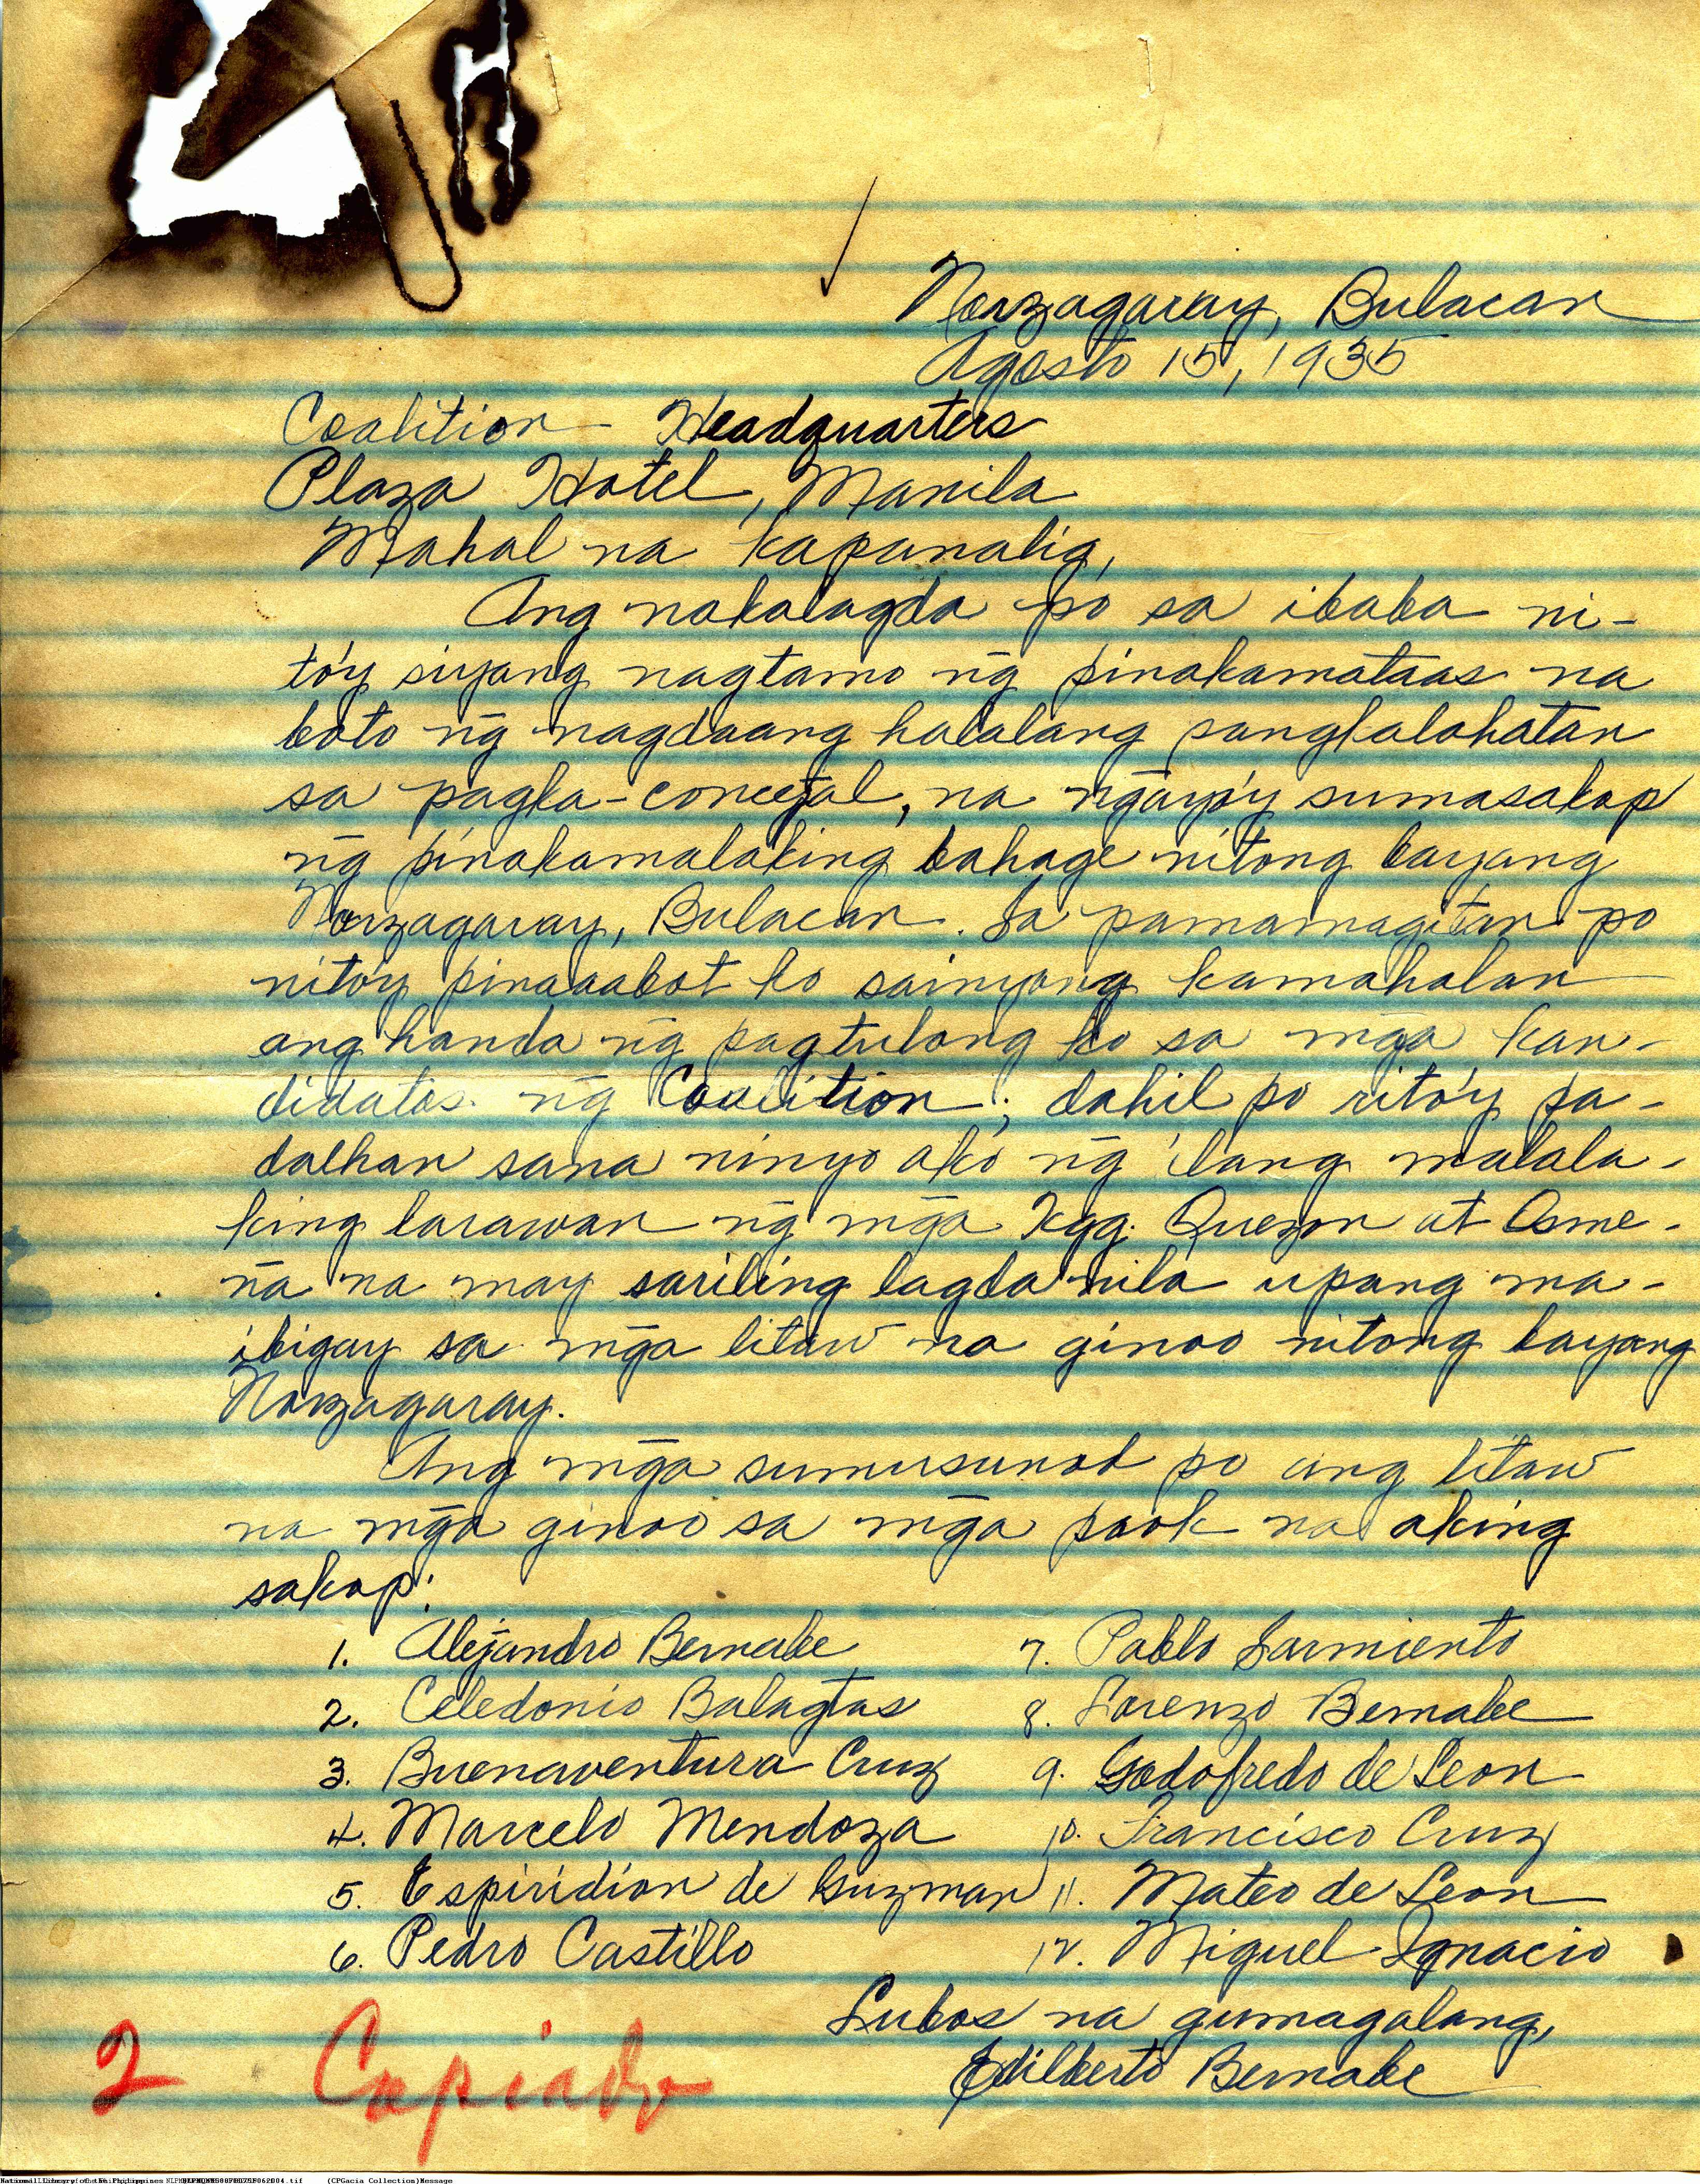 Norzagaray, Bulacan
Agosto 15, 1935
Coalition Headquarters
Plaza Hotel, Manila
Mahal na kapanalig,
Ang nakalagda po sa ibaba ni-
to'y siyang nagtamo ng̃ pinakamataas na
boto ng̃ nagdaang halalang pangkalahatan
sa pagka-concejal, na ng̃ayo'y sumasakop
ng̃ pinakamalaking bahage nitong bayang
Norzagaray, Bulacan. Sa pamamagitan po
nito'y pinaaabot ko sainyong kamahalan
ang handa ng̃ pagtulong ko sa mg̃a kan-
didatos ng̃ Coalition; dahil po rito'y pa-
dalhan sana ninyo ako ng̃ ilang malala-
king larawan ng̃ mg̃a Kgg. Quezon at Osme-
ña na may sariling lagda nila upang ma-
ibigay sa mg̃a litaw na ginoo nitong bayang
Norzagaray.
Ang mg̃a sumusunod po ang litaw
na mg̃a ginoo sa mg̃a pook na aking
sakop:
1. Alejandro Bernabe 7. Pablo Sarmiento
2. Celedonio Balagtas 8. Lorenzo Bernabe
3. Buenaventura Cruz 9. Godofredo de Leon
4. Marcelo Mendoza 10. Francisco Cruz
5. Espiridion de Guzman 11. Mateo de Leon
6. Pedro Castillo 12. Miguel Ignacio
Lubos na gumagalang,
Edilberto Bernabe
2 Copiado
(CPGacia Collection)Message